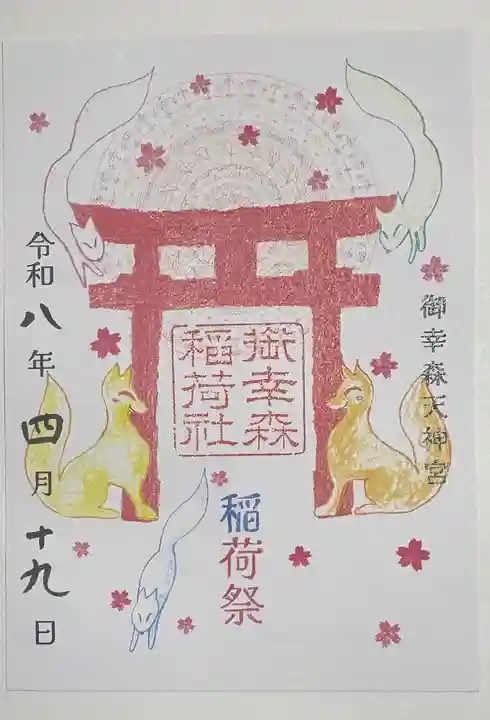 御幸森天神宮
御幸森
稲荷社
稲荷祭
令和八年四月十九日